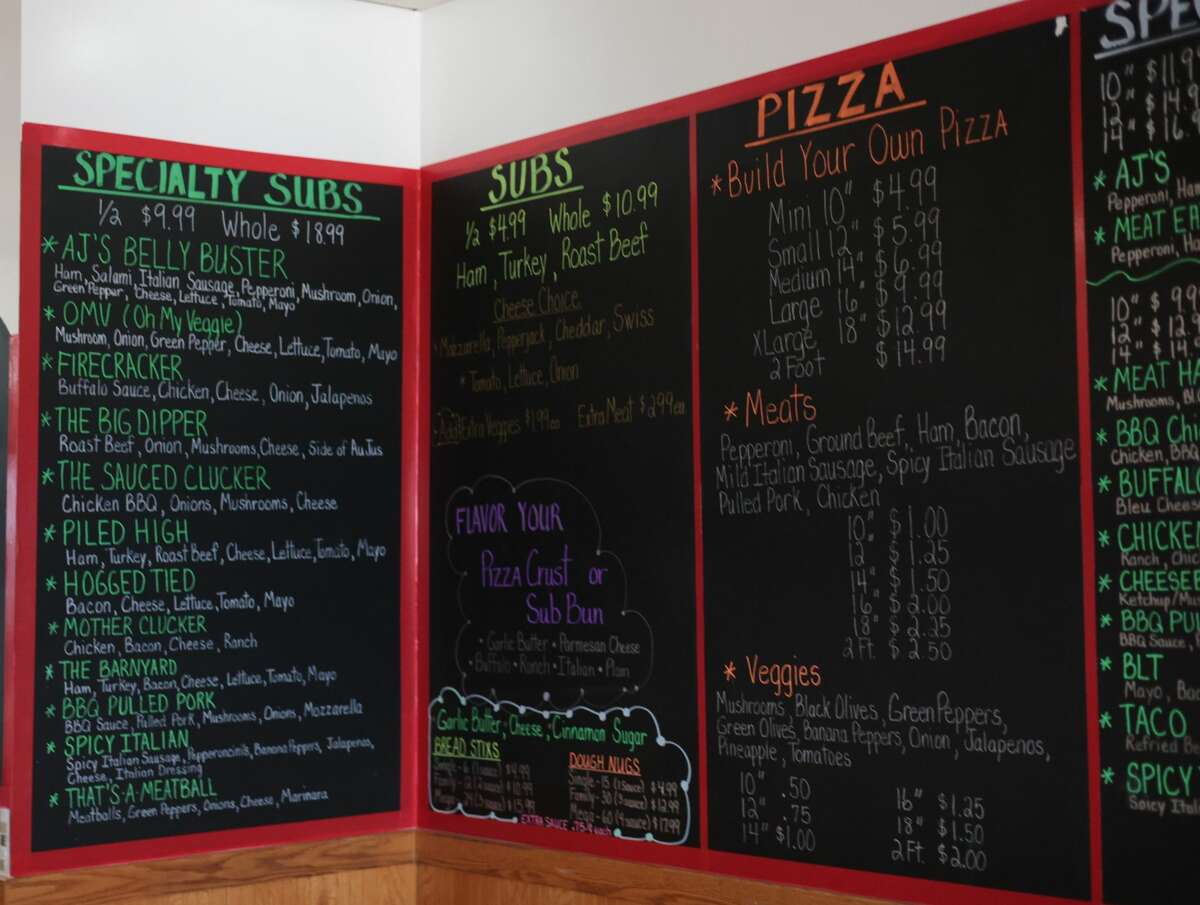 SPECIALTY SUBS
1/2 $9.99 Whole $18.99
* AJ'S BELLY BUSTER
Ham, Salami, Italian Sausage, Pepperoni, Mushroom, Onion,
Green Peppur, Cheese, Lettuce, Tomato, Mayo
* OMV (Oh My Veggie)
Mushroom, Onion, Green Pepper, Cheese, Lettuce, Tomato, Mayo
* FIRECRACKER
Buffalo Sauce, Chicken, Cheese, Onion, Jalapenos
* THE BIG DIPPER
Roast Beef, Onion, Mushrooms, Cheese, Side of Au Jus
* THE SAUCED CLUCKER
Chicken BBQ, Onions, Mushrooms, Cheese
* PILED HIGH
Ham, Turkey, Roast Beef, Cheese, Lettuce, Tomato, Mayo
* HOGGED TIED
Bacon, Cheese, Lettuce, Tomato, Mayo
* MOTHER CLUCKER
Chicken, Bacon, Cheese, Ranch
* THE BARNYARD
Ham, Turkey, Bacon, Cheese, Lettuce, Tomato, Mayo
* BBQ PULLED PORK
BBQ Sauce, Pulled Pork, Mushrooms, Onions, Mozzarella
* SPICY ITALIAN
Spicy Italian Sausage, Pepperoncinis, Banana Peppers, Jalapenos,
Cheese, Italian Dressing
* THAT'S-A-MEATBALL
Meatballs, Green Peppers, Onions, Cheese, Marinara
SUBS
1/2 $4.99 Whole $10.99
Ham, Turkey, Roast Beef
Cheese Choice
Mozzarella, Pepperjack, Cheddar, Swiss
* Tomato, Lettuce, Onion
Extra Veggies $1.99 ea Extra Meat $2.99 ea
FLAVOR YOUR
PIZZA CRUST or
SUB BUN
• Garlic Butter • Parmesan Cheese
• Buffalo • Ranch • Italian • Plain
Garlic Butter, Cheese, Cinnamon Sugar
BREAD STIXS
Single - 6 (1 sauce) $4.99
Family $10.99
$15.99
DOUGH NUGS
Single - 15 (1 sauce) $4.99
Family - 30 (3 sauce) $12.99
Mega - 60 (4 sauce) $17.99
EXTRA SAUCE .75¢ each
PIZZA
* Build Your Own Pizza
Mini 10" $4.99
Small 12" $5.99
Medium 14" $6.99
Large 16" $9.99
XLarge 18" $12.99
2 Foot $14.99
* Meats
Pepperoni, Ground Beef, Ham, Bacon,
Mild Italian Sausage, Spicy Italian Sausage
Pulled Pork, Chicken
10" $1.00
12" $1.25
14" $1.50
16" $2.00
18" $2.25
2 Ft. $2.50
* Veggies
Mushrooms, Black Olives, Green Peppers,
Green Olives, Banana Peppers, Onion, Jalapenos,
Pineapple, Tomatoes
10" .50
12" .75
14" $1.00
16" $1.25
18" $1.50
2 Ft. $2.00
SPE
10" $11.9
12" $14.9
14" $16.
* AJ'S
Pepperoni, Ha
* MEAT E
Pepperoni, H
10" $9.9
12" $12.
14" $14.
* MEAT HA
Mushrooms, Bl
* BBQ Chi
Chicken, BBQ
* BUFFALO
Bleu Cheese
* CHICKEN
Ranch, Chic
* CHEESEB
Ketchup/Mus
* BBQ PUL
BBQ Sauce,
* BLT
Mayo, Ba
* TACO
Refried Be
* SPICY
Spicy Ital